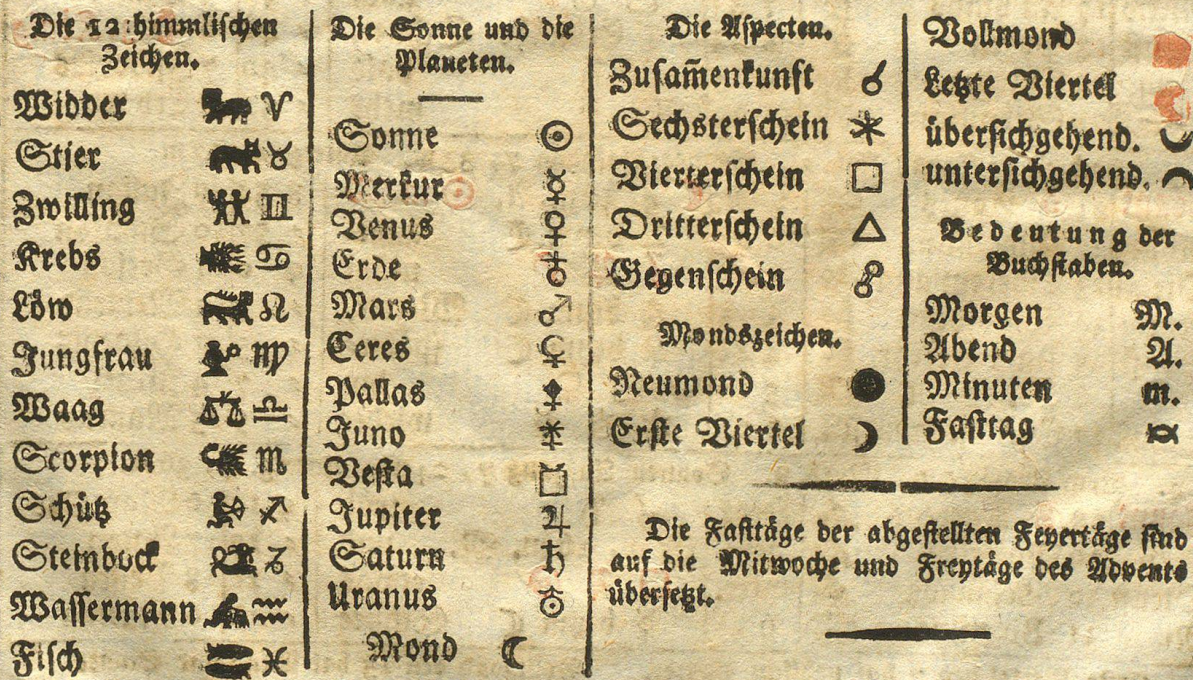 Die 12 himmlischen
Zeichen.
Widder ♈
Stier ♉
Zwilling ♊
Krebs ♋
Löw ♌
Jungfrau ♍
Waag ♎
Scorpion ♏
Schütz ♐
Steinbock ♑
Wassermann ♒
Fisch ♓
Die Sonne und die
Planeten.
Sonne ☉
Merkur ☿
Venus ♀
Erde ♁
Mars ♂
Ceres ⚳
Pallas ⚴
Juno ⚵
Vesta ⚶
Jupiter ♃
Saturn ♄
Uranus ⛢
Mond ☾
Die Aspecten.
Zusam̄enkunft ☌
Sechsterschein ⚹
Vierterschein □
Dritterschein △
Gegenschein ☍
Mondszeichen.
Neumond ●
Erste Viertel ☽
Vollmond
Letzte Viertel
übersichgehend.
untersichgehend.
Bedeutung der
Buchstaben.
Morgen M.
Abend A.
Minuten m.
Fasttag
Die Fasttäge der abgestellten Feyertäge sind
auf die Mitwoche und Freytäge des Advents
übersetzt.